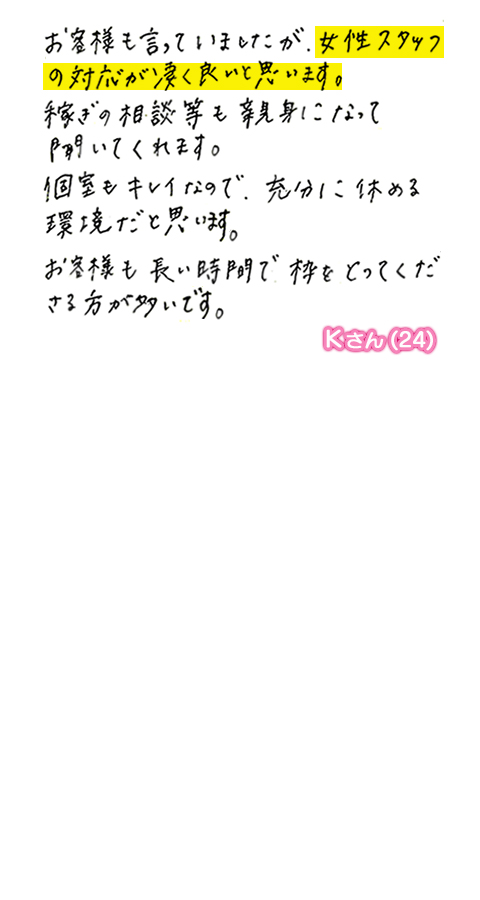 お客様も言っていましたが、女性スタッフ
の対応が凄く良いと思います。
稼ぎの相談等も親身になって
聞いてくれます。
個室もキレイなので、充分に休める
環境だと思います。
お客様も長い時間で枠をとってくだ
さる方が多いです。
Kさん(24)